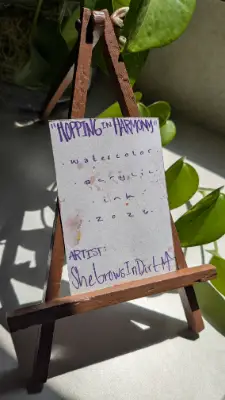 "HOPPING IN HARMONY"
· watercolor
· acrylic
· ink
· 2026·
ARTIST:
SheGrowsInDirt